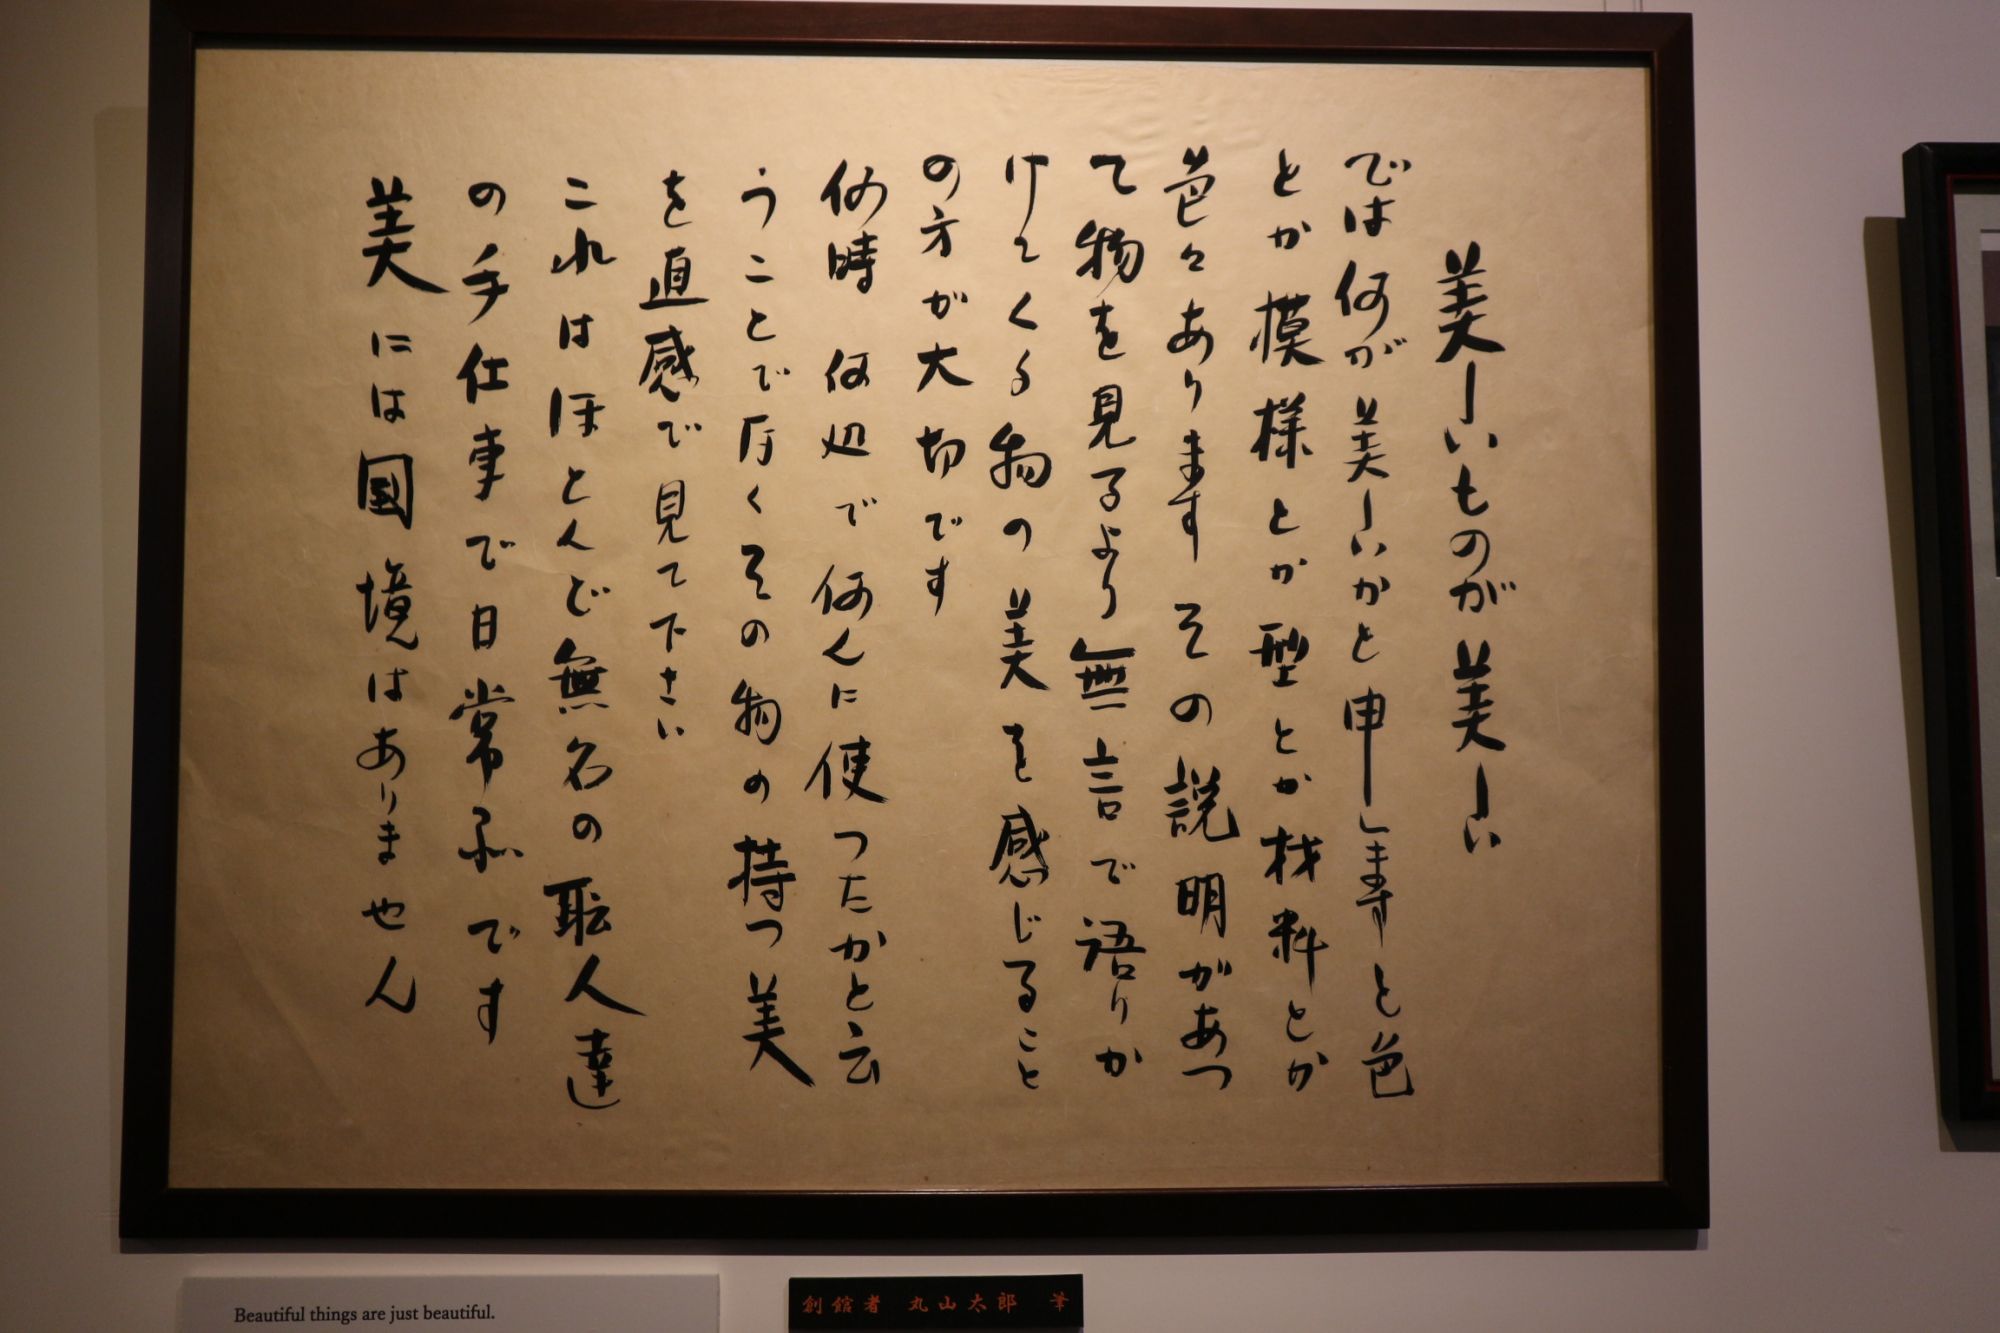 美しいものが美しい
では何が美しいかと申しますと色
とか模様とか型とか材料とか
色々あります その説明があつ
て物を見るより無言で語りか
けてくる物の美を感じること
の方が大切です
何時 何処で何んに使つたかと云
うことで无くその物の持つ美
を直感で見て下さい
これはほとんど無名の耺人達
の手仕事で日常品です
美には国境はありません
Beautiful things are just beautiful.
創館者 丸山太郎 筆